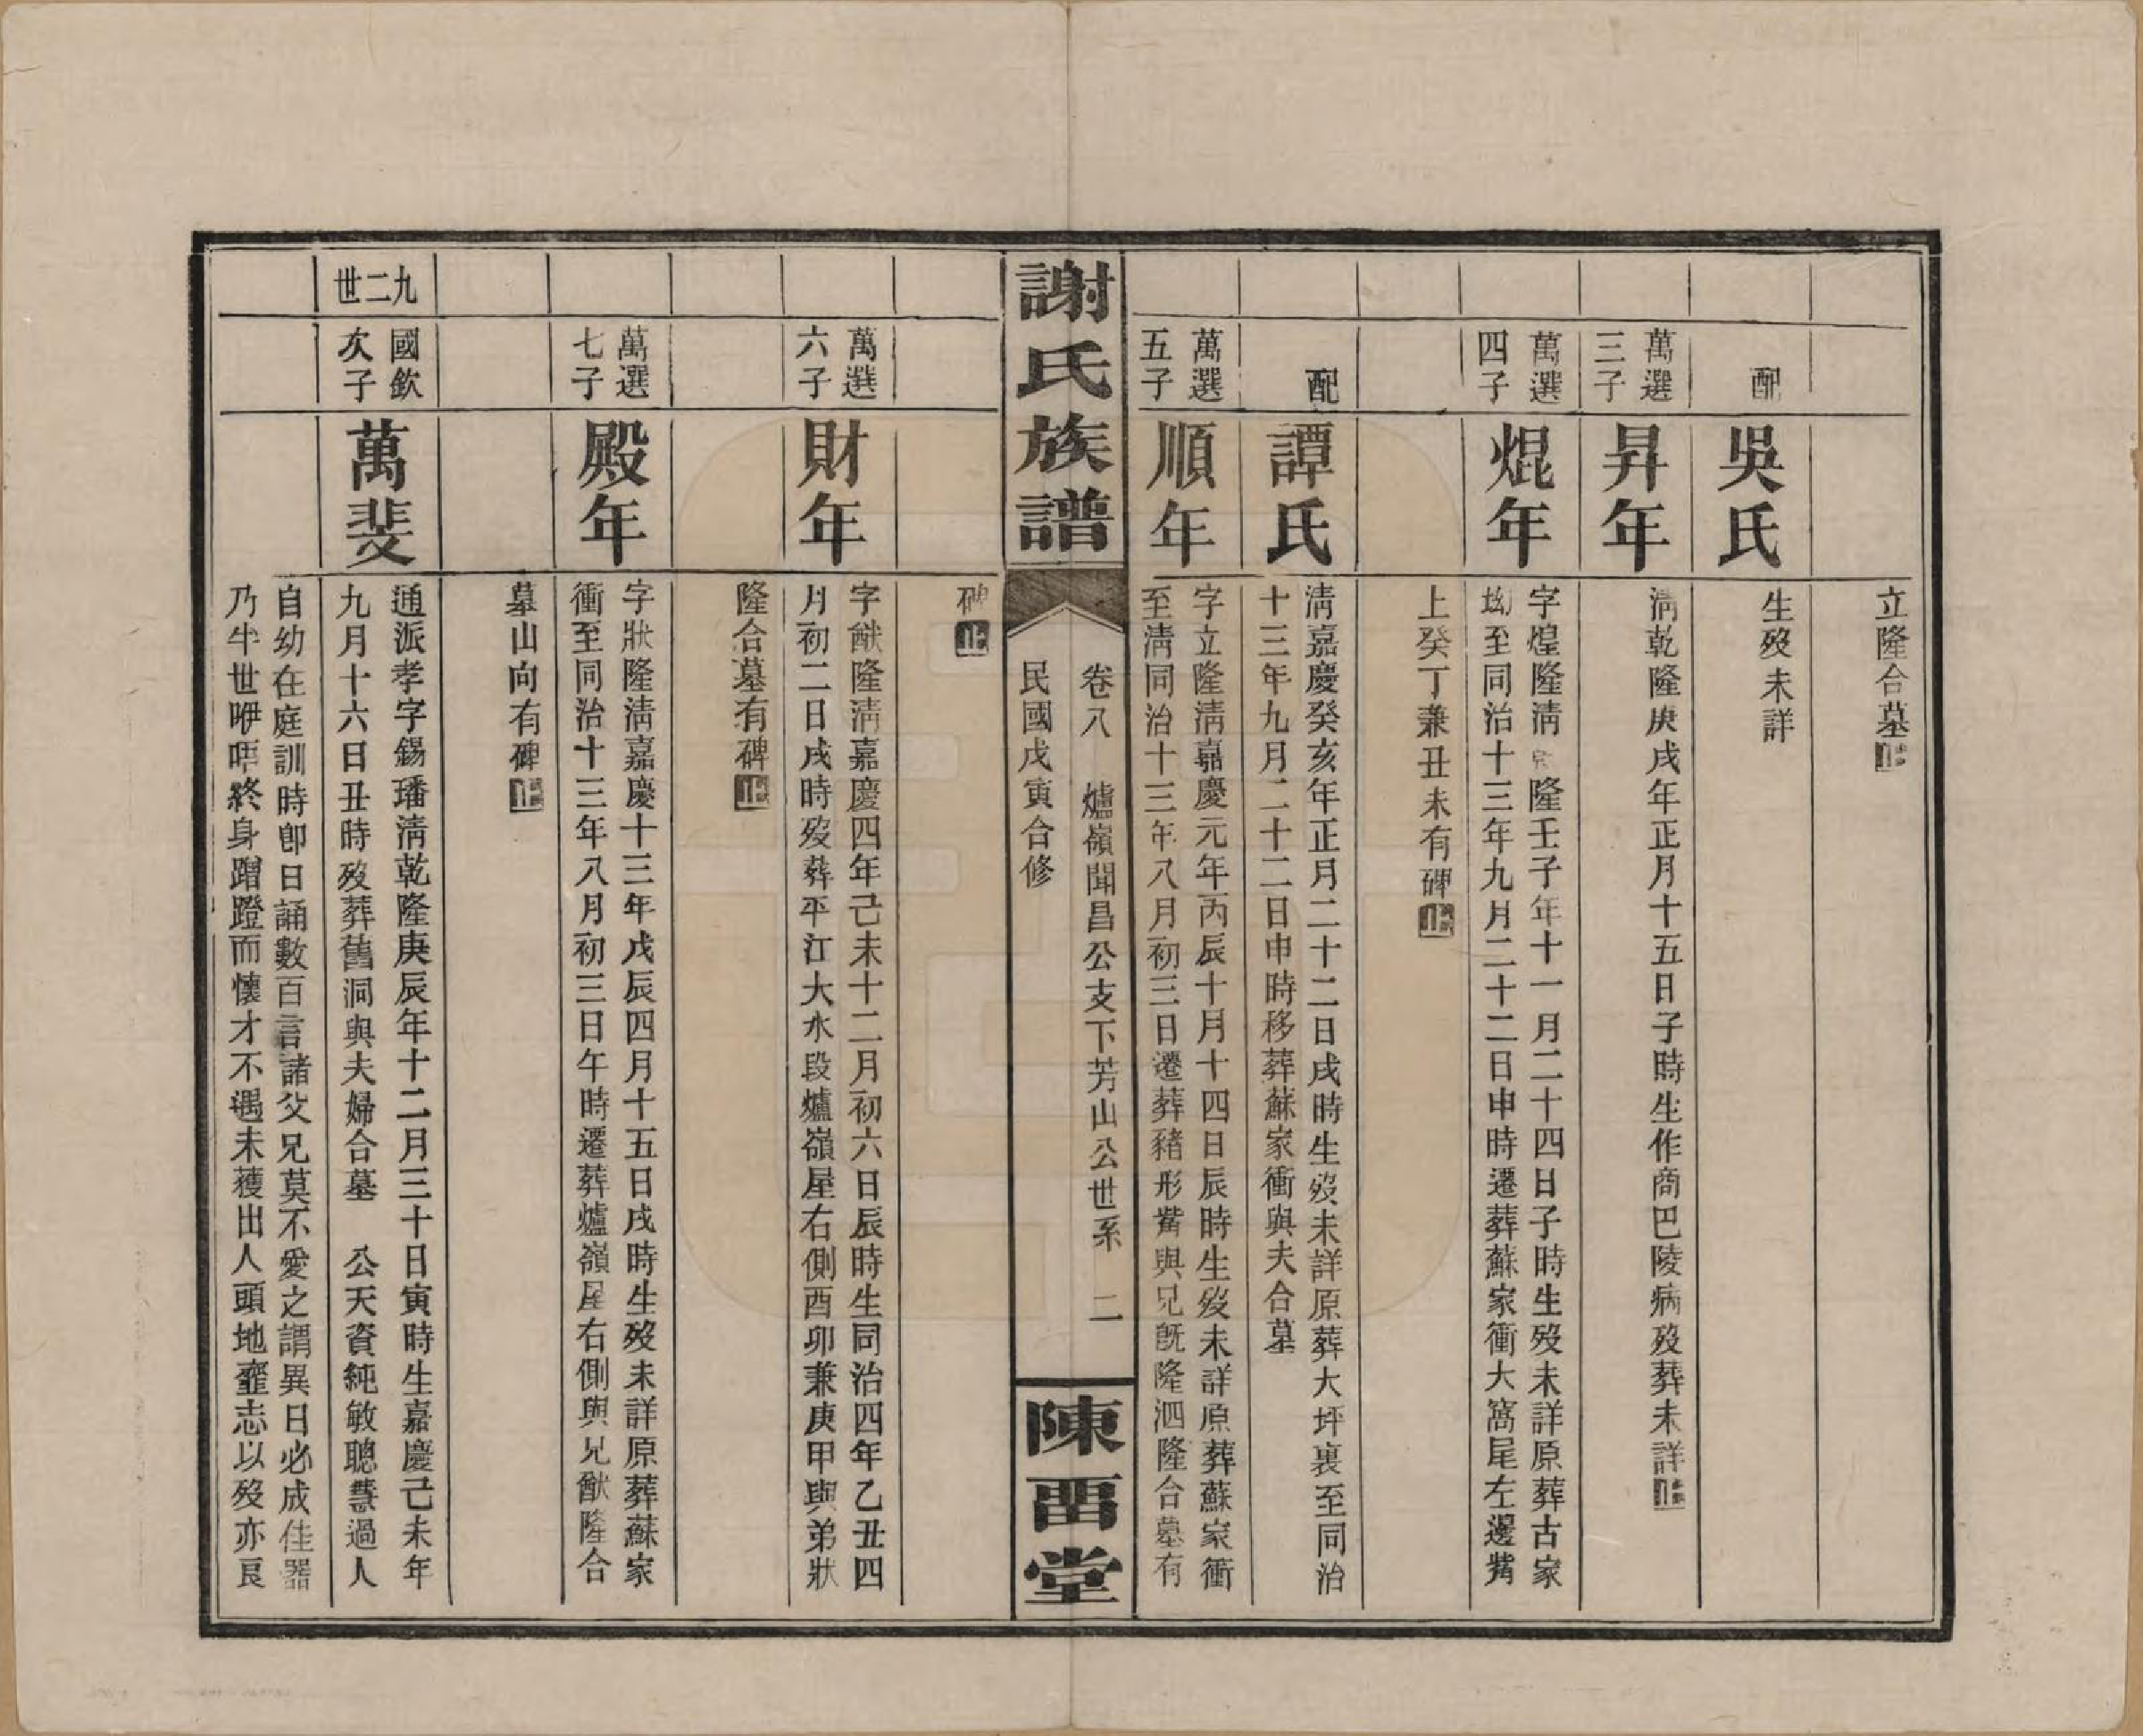 立隆合墓止
配
吳氏
生歿未詳
萬選
三子
昇年
淸乾隆庚戌年正月十五日子時生作商巴陵病歿葬未詳止
萬選
四子
焜年
字煌隆淸乾隆壬子年十一月二十四日子時生歿未詳原葬古家
坳至同治十三年九月二十二日申時遷葬蘇家衝大窩尾左邊觜
上癸丁兼丑未有碑止
配
譚氏
淸嘉慶癸亥年正月二十二日戌時生歿未詳原葬大坪裏至同治
十三年九月二十二日申時移葬蘇家衝與夫合墓
萬選
五子
順年
字立隆淸嘉慶元年丙辰十月十四日辰時生歿未詳原葬蘇家衝
至淸同治十三年八月初三日遷葬豬形觜與兄旣隆泗隆合墓有
謝氏族譜
卷八　爐嶺聞昌公支下芳山公世系　二
民國戊寅合修
陳畱堂
碑止
萬選
六子
財年
字猷隆淸嘉慶四年己未十二月初六日辰時生同治四年乙丑四
月初二日戌時歿葬平江大水段爐嶺屋右側酉卯兼庚甲與弟狀
隆合墓有碑止
萬選
七子
殿年
字狀隆淸嘉慶十三年戊辰四月十五日戌時生歿未詳原葬蘇家
衝至同治十三年八月初三日午時遷葬爐嶺屋右側與兄猷隆合
墓山向有碑止
九二世
國欽
次子
萬斐
通派孝字錫璠淸乾隆庚辰年十二月三十日寅時生嘉慶己未年
九月十六日丑時歿葬舊洞與夫婦合墓　公天資純敏聰慧過人
自幼在庭訓時卽日誦數百言諸父兄莫不愛之謂異日必成佳器
乃半世咿唔終身蹭蹬而懷才不遇未獲出人頭地齎志以歿亦良